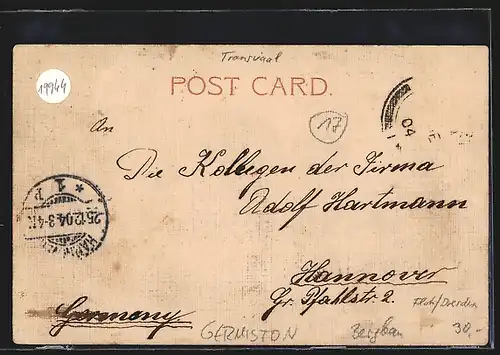 Transvaal
19944
POST CARD.
17
04
An
Die Kollegen der Firma
Adolf Hartmann
* 1 P
25.12.04.3-4N
HAN
Hannover
Gr. Pfahlstr. 2.
Germany
GERMISTON
Bergbau
30,-